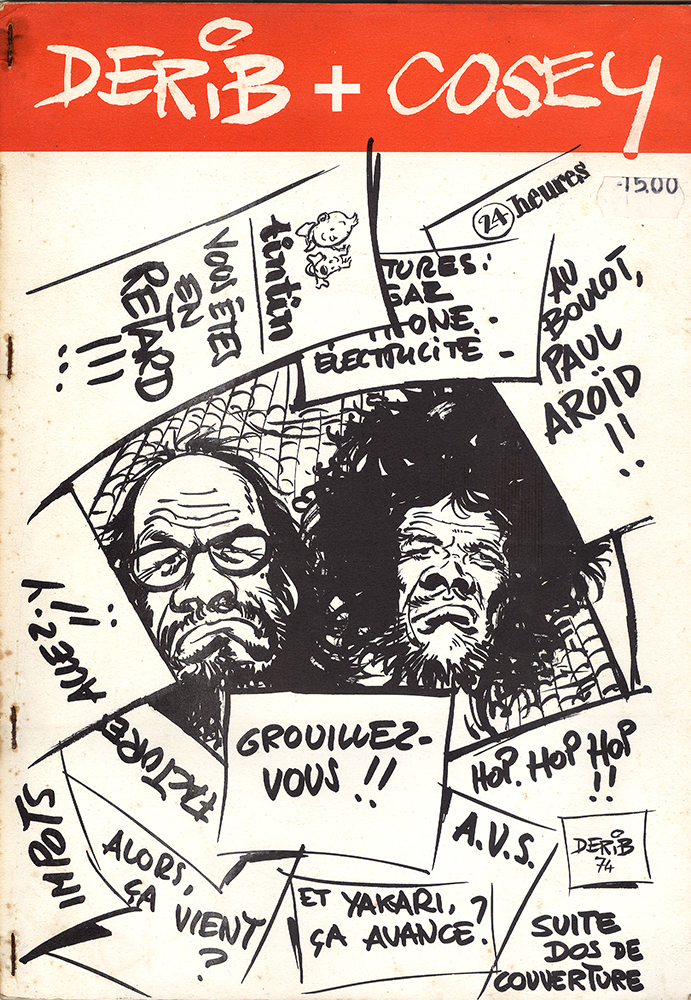 DERIB + COSEY
-15.00
24 heures
tintin
VOUS ÊTES
EN
RETARD
!!!...
TURES:
GAZ
ONE -
ÉLECTRICITÉ -
AU
BOULOT,
PAUL
AROÏD
!!..
ALLEZ-Y
!!
FACTURE
GROUILLEZ-
VOUS !!
HOP. HOP HOP
!!
IMPOTS
ALORS,
ÇA VIENT
?
A.V.S.
ET YAKARI,
ÇA AVANCE?
DERIB
74
SUITE
DOS DE
COUVERTURE